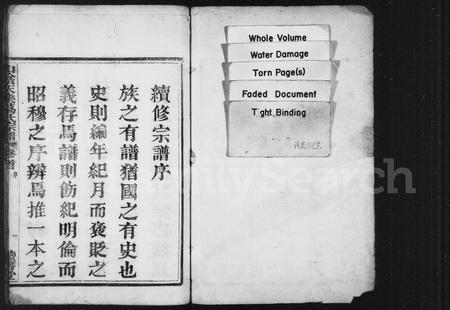 續修宗譜序
族之有譜猶國之有史也
史則編年紀月而褒貶之
義存焉譜則飭紀明倫而
昭穆之序辨焉推一本之
Whole Volume
Water Damage
Torn Page(s)
Faded Document
Tight Binding
FamilySearch